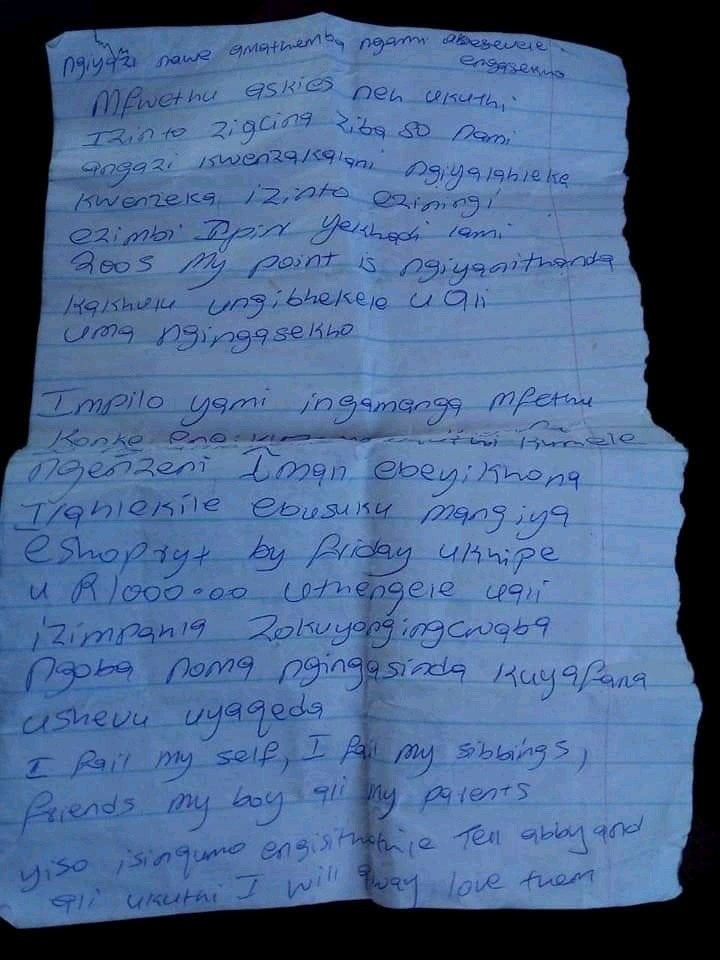 ngiyazi nawe amathemba ngami abesevele
engasekho
Mfwethu askies neh ukuthi
Izinto zigcina ziba so nami
angazi kwenzakalani ngiyalahleka
kwenzeka izinto eziningi
ezimbi Ipin yekhadi lami
2005 My point is ngiyanithanda
kakhulu ungibhekele u Qli
uma ngingasekho
Impilo yami ingamanga Mfethu
Konke kumele
ngenzeni Iman ebeyikhona
Ilahlekile ebusuku mangiya
eshopryt by friday ukhipe
u R1000.00 uthengele uqli
izimpahla zokuyongingcwaba
Ngoba noma ngingasinda kuyafana
ushevu uyaqeda
I fail my self, I fail my sibbings,
friends my boy qli my parents
yiso isinqumo engisithathile Tell abby and
qli ukuthi I will away love them